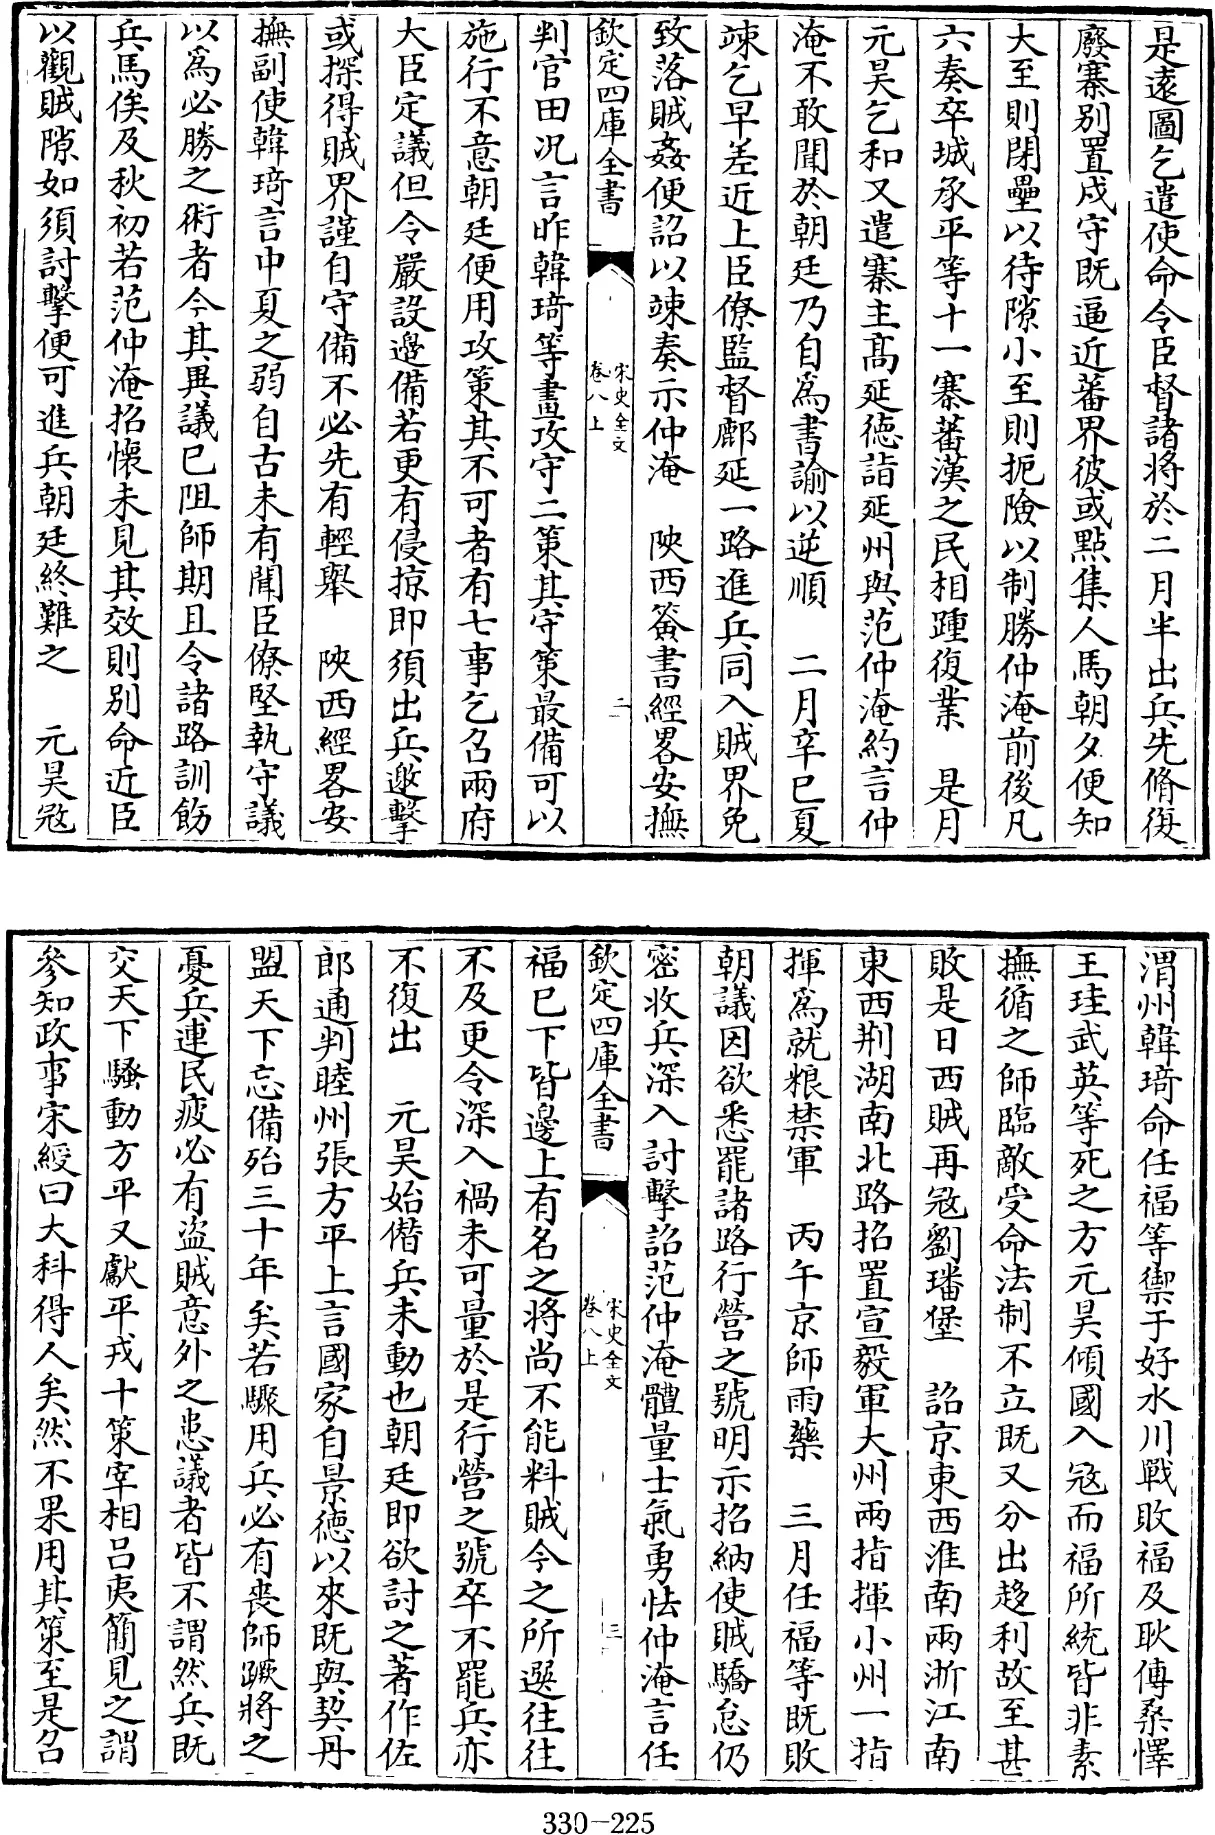 是遠圖乞遣使命令臣督諸將於二月半出兵先脩復
廢寨别置戍守既逼近蕃界彼或點集人馬朝夕便知
大至則閉壘以待隙小至則扼險以制勝仲淹前後凡
六奏卒城承平等十一寨蕃漢之民相踵復業　是月
元昊乞和又遣寨主髙延徳詣延州與范仲淹約言仲
淹不敢聞於朝廷乃自為書諭以逆順　二月辛巳夏
竦乞早差近上臣僚監督鄜延一路進兵同入賊界免
致落賊姦便詔以竦奏示仲淹　陜西簽書經畧安撫
欽定四庫全書
宋史全文
卷八上
二
判官田况言昨韓琦等畫攻守二策其守策最備可以
施行不意朝廷便用攻策其不可者有七事乞召兩府
大臣定議但令嚴設邊備若更有侵掠即須出兵邀擊
或探得賊界謹自守備不必先有輕舉　陜西經畧安
撫副使韓琦言中夏之弱自古未有聞臣僚堅執守議
以為必勝之術者今其異議已阻師期且令諸路訓飭
兵馬俟及秋初若范仲淹招懐未見其效則别命近臣
以觀賊隙如須討擊便可進兵朝廷終難之　元昊宼
渭州韓琦命任福等禦于好水川戰敗福及耿傅桑懌
王珪武英等死之方元昊傾國入宼而福所統皆非素
撫循之師臨敵受命法制不立既又分出趍利故至甚
敗是日西賊再宼劉璠堡　詔京東西淮南兩浙江南
東西荆湖南北路招置宣毅軍大州兩指揮小州一指
揮為就粮禁軍　丙午京師雨藥　三月任福等既敗
朝議因欲悉罷諸路行營之號明示招納使賊驕怠仍
密收兵深入討擊詔范仲淹體量士氣勇怯仲淹言任
欽定四庫全書
宋史全文
卷八上
三
福已下皆邊上有名之將尚不能料賊今之所選往往
不及更令深入禍未可量於是行營之號卒不罷兵亦
不復出　元昊始僭兵未動也朝廷即欲討之著作佐
郎通判睦州張方平上言國家自景徳以來既與契丹
盟天下忘備殆三十年矣若驟用兵必有喪師蹶將之
憂兵連民疲必有盜賊意外之患議者皆不謂然兵既
交天下騷動方平又獻平戎十策宰相吕夷簡見之謂
參知政事宋綬曰大科得人矣然不果用其策至是召
330-225